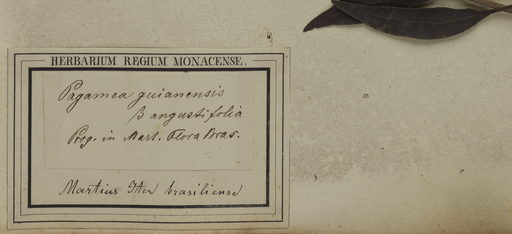 HERBARIUM REGIUM MONACENSE.
Pagamea guianensis
β angustifolia
Prog. in Mart. Flora Bras.
Martius Iter brasiliense